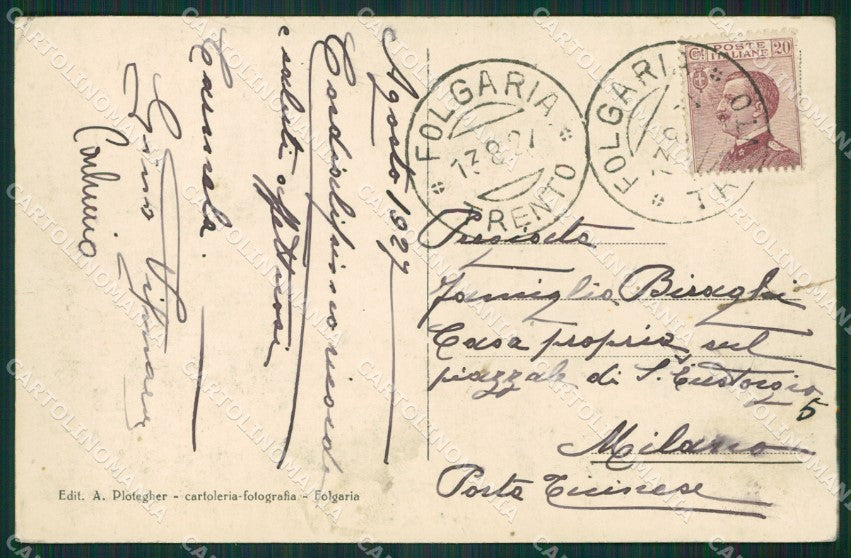 Agosto 1927
Cordialissimo ricordo
e saluti affettuosi
Carmela.
Gino
FOLGARIA
13.8.27
TRENTO
FOLGARIA
TRENTO
POSTE
ITALIANE
Cent. 20
Pregiata
Famiglia Biraghi
Casa propria sul
piazzale di S. Eustorgio
5
Milano
Porta Ticinese
Edit. A. Plotegher - cartoleria-fotografia - Folgaria
CARTOLINOMANIA